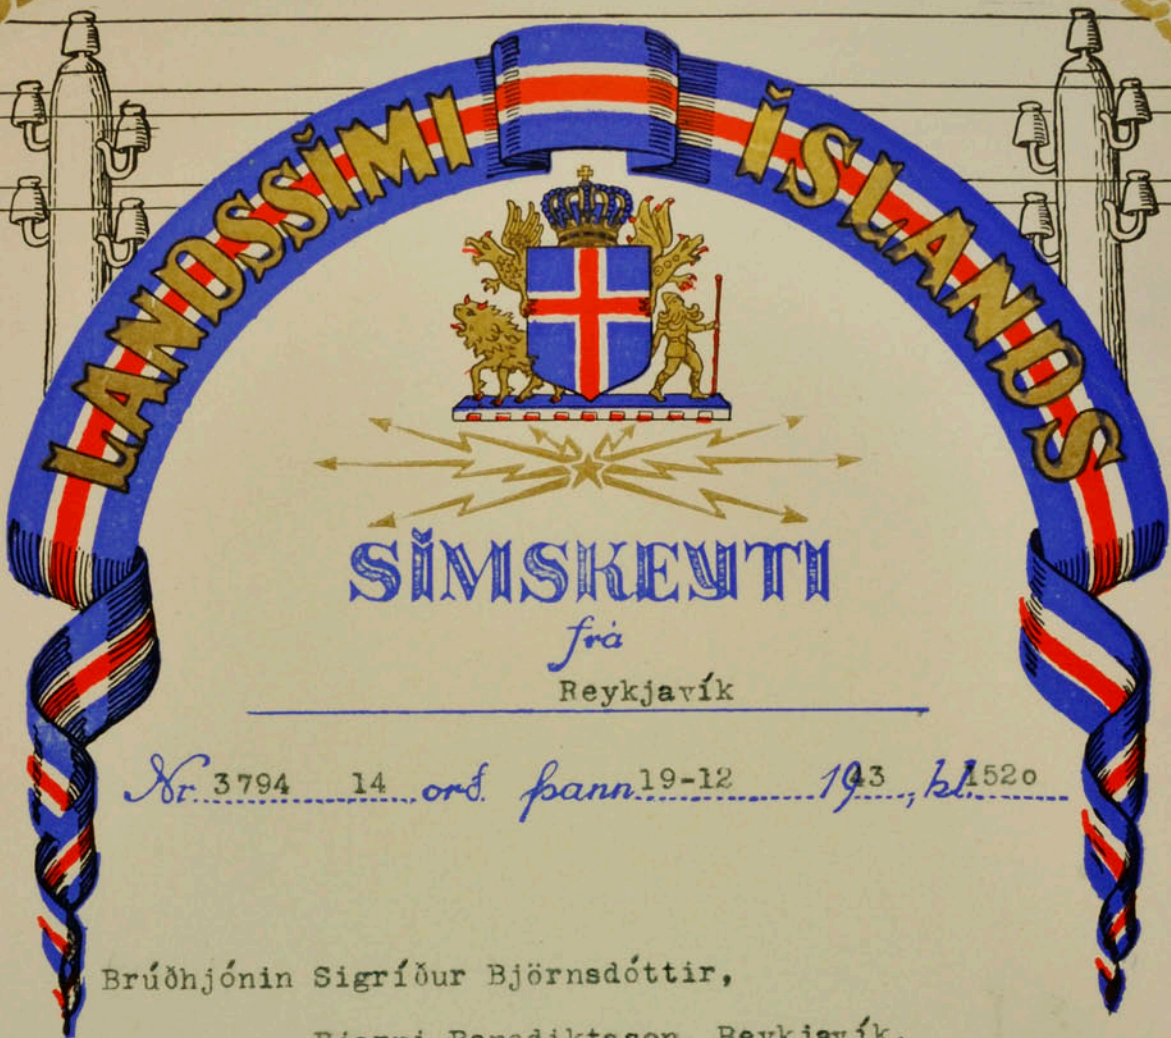 LANDSSÍMI ÍSLANDS
SÍMSKEYTI
frá
Reykjavík
Nr. 3794 14 orð. þann 19-12 1943, kl. 152o
Brúðhjónin Sigríður Björnsdóttir,
Bjarni Benediktsson, Reykjavík.